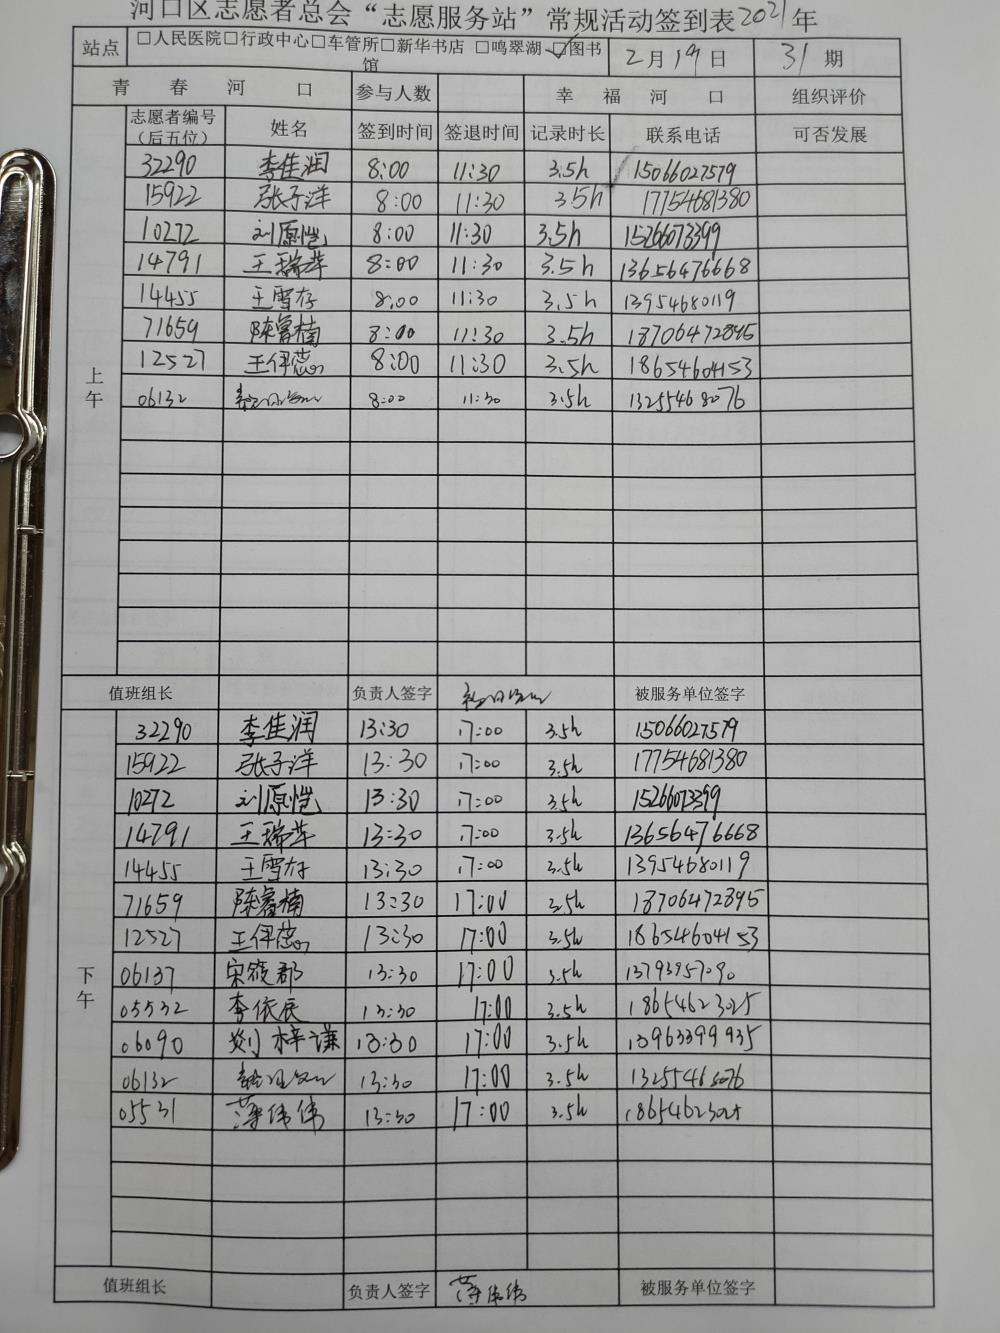 河口区志愿者总会“志愿服务站”常规活动签到表2021年
站点 □人民医院□行政中心□车管所□新华书店 □鸣翠湖 ☑图书馆 2月19日 31期
青春河口 参与人数 幸福河口 组织评价
志愿者编号（后五位） 姓名 签到时间 签退时间 记录时长 联系电话 可否发展
上午
32290 李佳润 8:00 11:30 3.5h 15066027579
15922 张子洋 8:00 11:30 3.5h 17754681380
10272 刘原恺 8:00 11:30 3.5h 15266073399
14791 王瑞萍 8:00 11:30 3.5h 13656476668
14455 王雪存 8:00 11:30 3.5h 13954680119
71659 陈睿楠 8:00 11:30 3.5h 18706472895
12527 王伊蕊 8:00 11:30 3.5h 18654604153
06132 8:00 11:30 3.5h 13255468076
值班组长 负责人签字 被服务单位签字
下午
32290 李佳润 13:30 17:00 3.5h 15066027579
15922 张子洋 13:30 17:00 3.5h 17754681380
10272 刘原恺 13:30 17:00 3.5h 15266073399
14791 王瑞萍 13:30 17:00 3.5h 13656476668
14455 王雪存 13:30 17:00 3.5h 13954680119
71659 陈睿楠 13:30 17:00 3.5h 18706472895
12527 王伊蕊 13:30 17:00 3.5h 18654604153
06137 宋筱郡 13:30 17:00 3.5h 13793957090
05532 李依辰 13:30 17:00 3.5h 18654623025
06090 刘梓谦 13:30 17:00 3.5h 13963399935
06132 13:30 17:00 3.5h 13255468076
05531 薄伟伟 13:30 17:00 3.5h
值班组长 负责人签字 薄伟伟 被服务单位签字